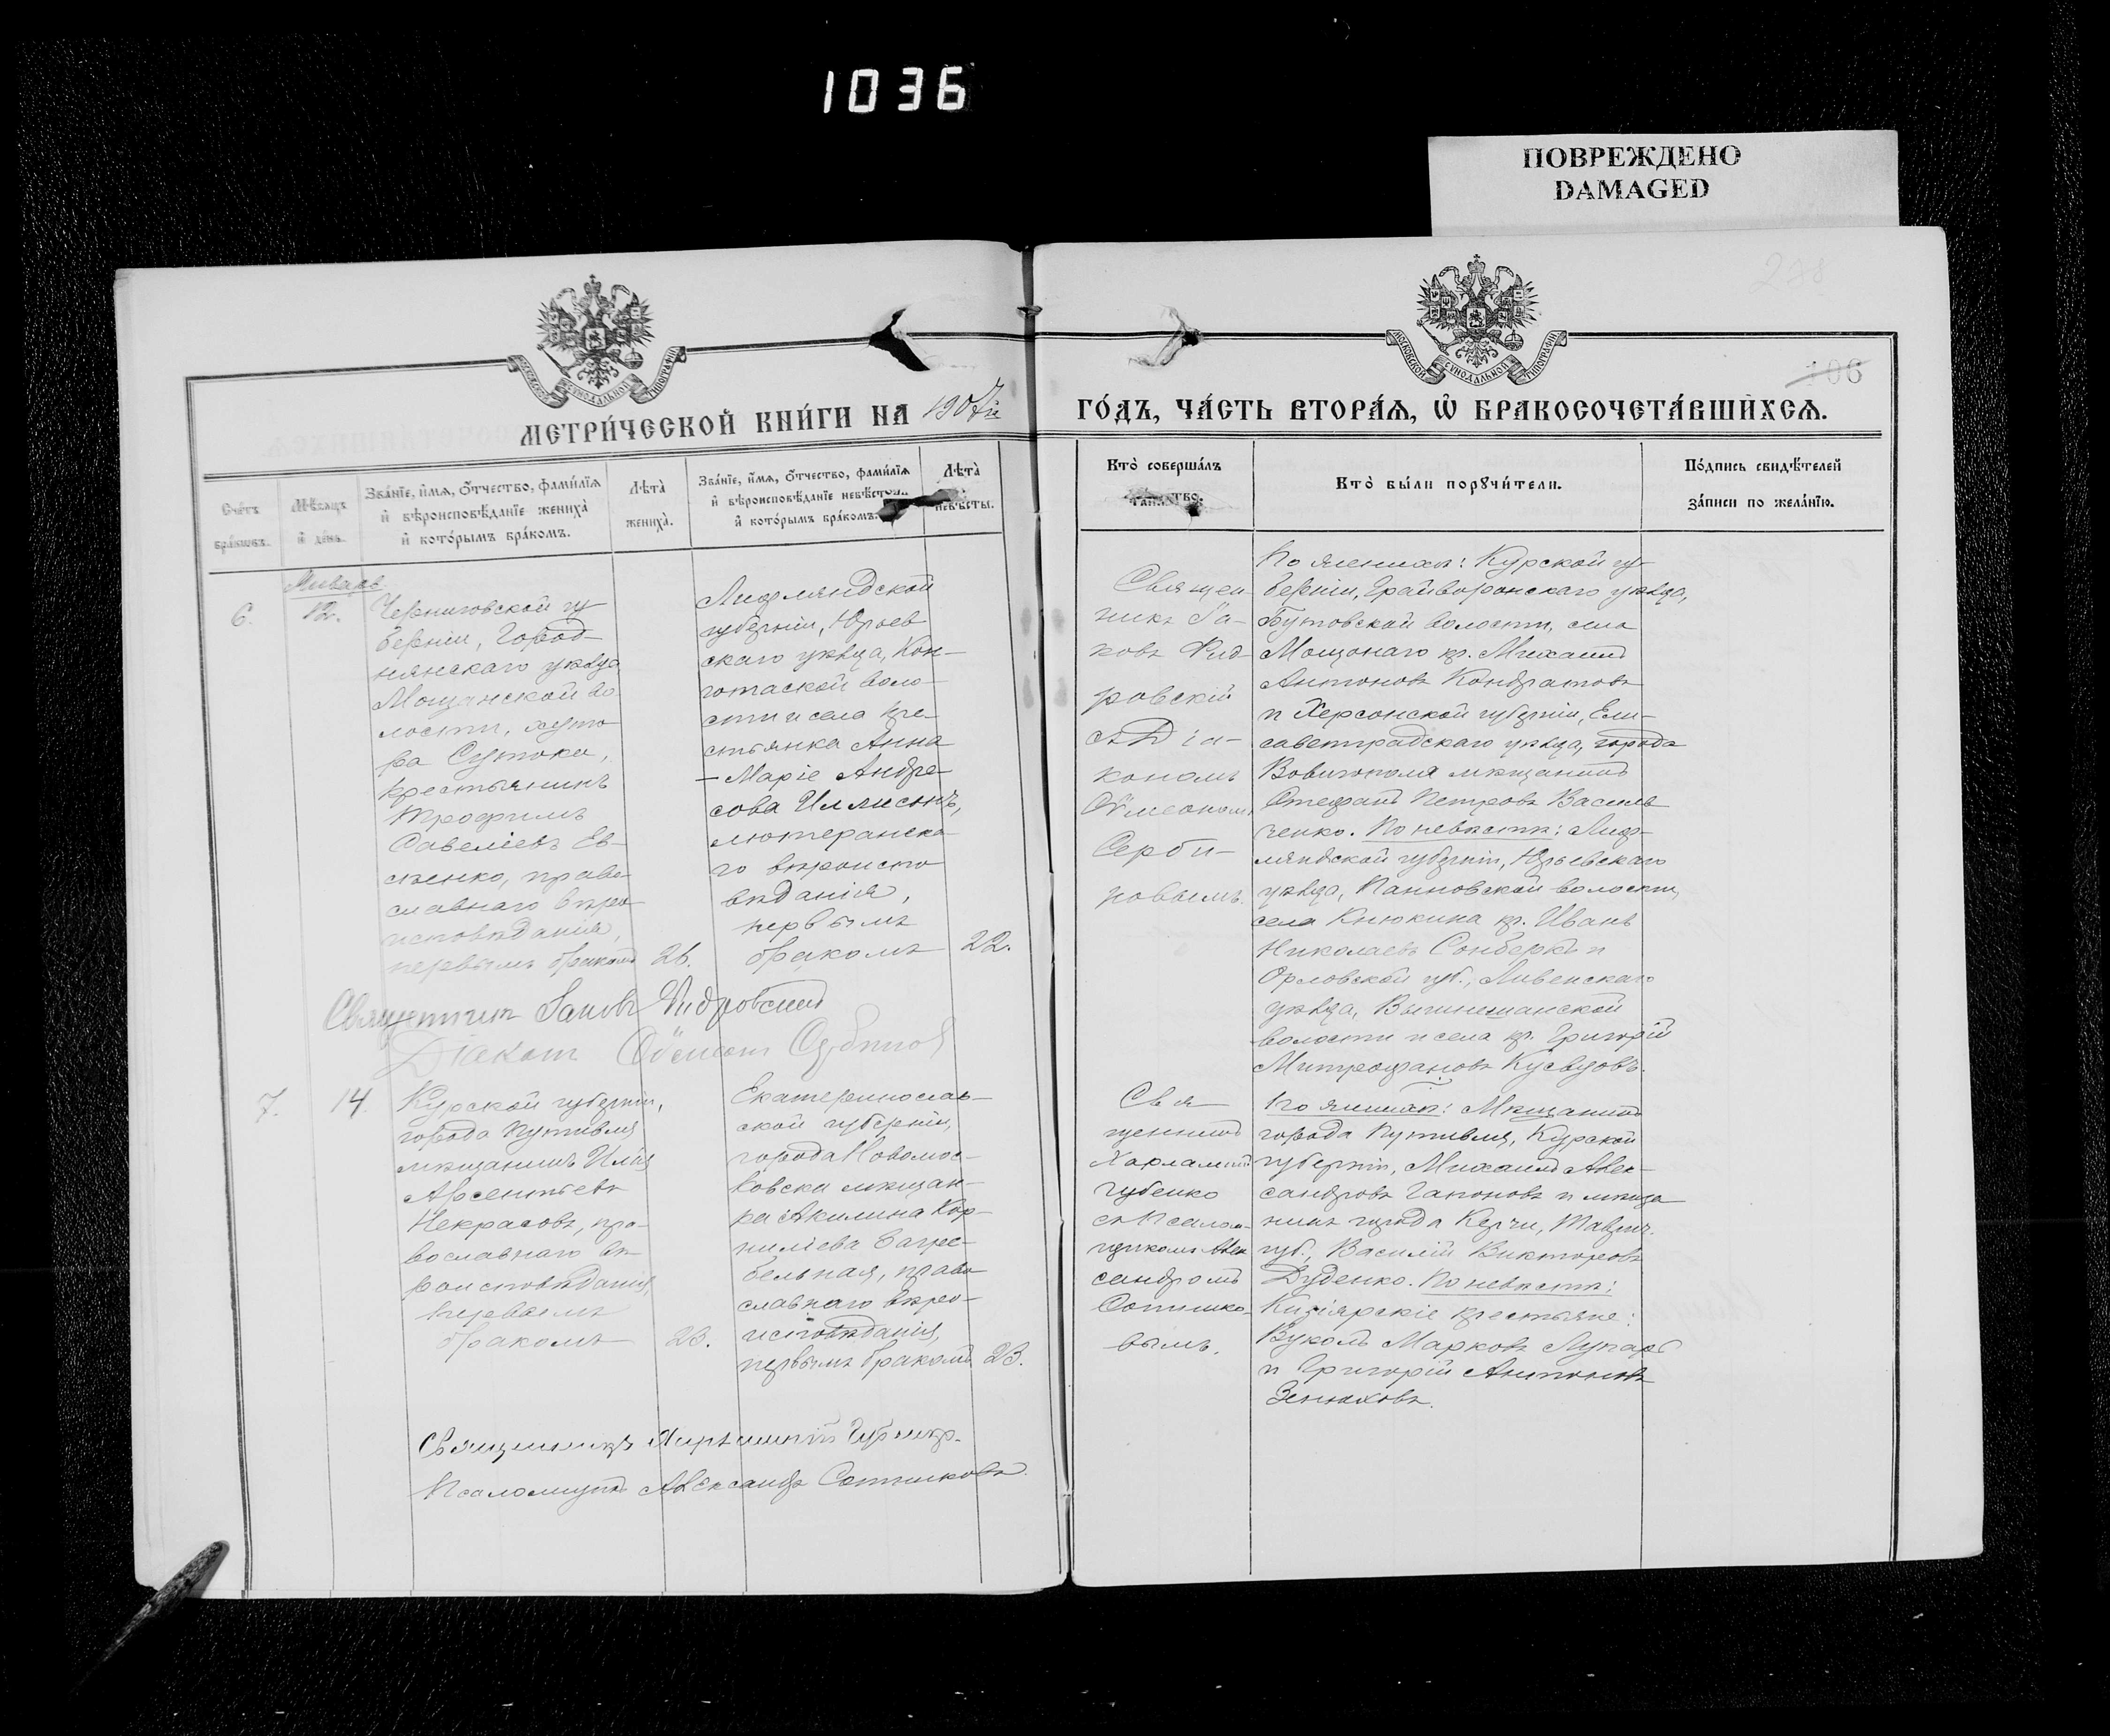 1036
ПОВРЕЖДЕНО
DAMAGED
278
106
МОСКОВСКОЙ СѴНОДАЛЬНОЙ ТИПОГРАФІИ
МОСКОВСКОЙ СѴНОДАЛЬНОЙ ТИПОГРАФІИ
МЕТРИ́ЧЕСКОЙ КНИ́ГИ НА 1907й
ГО́ДЪ, ЧА́СТЬ ВТОРА́Я, Ѡ БРАКОСОЧЕТА́ВШИХСЯ.
Счетъ браковъ.
Мѣсяцъ и день.
Званіе, имя, отчество, фамилія
и вѣроисповѣданіе жениха
и которымъ бракомъ.
Лѣта жениха.
Званіе, имя, отчество, фамилія
и вѣроисповѣданіе невѣсты
и которымъ бракомъ.
Лѣта невѣсты.
Кто совершалъ
таинство.
Кто были поручители.
Подпись свидѣтелей
записи по желанію.
6.
Январь
12.
Черниговской гу-
берніи, Город-
нянскаго уѣзда
Мощанской во-
лости, хуто-
ра Сутоки,
крестьянинъ
Трофимъ
Савеліевъ Ев-
сѣенко, право-
славнаго вѣро-
исповѣданія,
первымъ бракомъ
26.
Лифляндской
губерніи, Юрьев
скаго уѣзда, Кон-
готаской воло-
сти и села кре-
стьянка Анна
-Маріе Андре-
сова Иллисонъ,
лютеранска-
го вѣроиспо-
вѣданія,
первымъ
бракомъ
22.
Священ-
никъ Іа-
ковъ Фид-
ровскій
съ Діа-
кономъ
Сѵмеономъ
Серби-
новымъ.
По женихѣ: Курской гу-
берніи, Грайворонскаго уѣзда,
Бутовской волости, села
Мощонаго кр. Михаилъ
Антоновъ Кондратовъ
и Херсонской губерніи, Ели-
саветградскаго уѣзда, города
Стефанъ Петровъ Василь
ченко. По невѣстѣ: Лиф-
ляндской губерніи, Юрьевскаго
уѣзда, волости,
села кр. Иванъ
Николаевъ Сонбергъ и
Орловской губ., Ливенскаго
уѣзда,
волости и села кр. Григорій
Митрофановъ
Священникъ Іаковъ Фидровскій
Діаконъ Сѵмеонъ Сербиновъ
7.
14.
Курской губерніи,
города Путивля
мѣщанинъ Илія
Арсентьевъ
Некрасовъ, пра-
вославнаго вѣ-
роисповѣданія,
первымъ
бракомъ
23.
Екатеринослав-
ской губерніи,
города Новомос-
ковска мѣщан-
ка Акилина Кор-
нилiева Загре-
бельная, право
славнаго вѣро-
исповѣданія,
первымъ бракомъ
23.
Свя-
щенникъ
Харлампій
Губенко
съ Псалом-
щикомъ Алек
сандромъ
Сотнико-
вымъ.
По женихѣ: Мѣщанинъ
города Путивля, Курской
губерніи, Михаилъ Алек-
сандровъ Гапоновъ и мѣща
нинъ города Керчи, Таврич.
губ., Василій Викторовъ
Дуденко. По невѣстѣ:
Кизіярскіе крестьяне:
Вуколъ Марковъ
и Григорій Антоновъ
Зенюховъ.
Священникъ Харлампій Губенко
Псаломщикъ Александръ Сотниковъ.